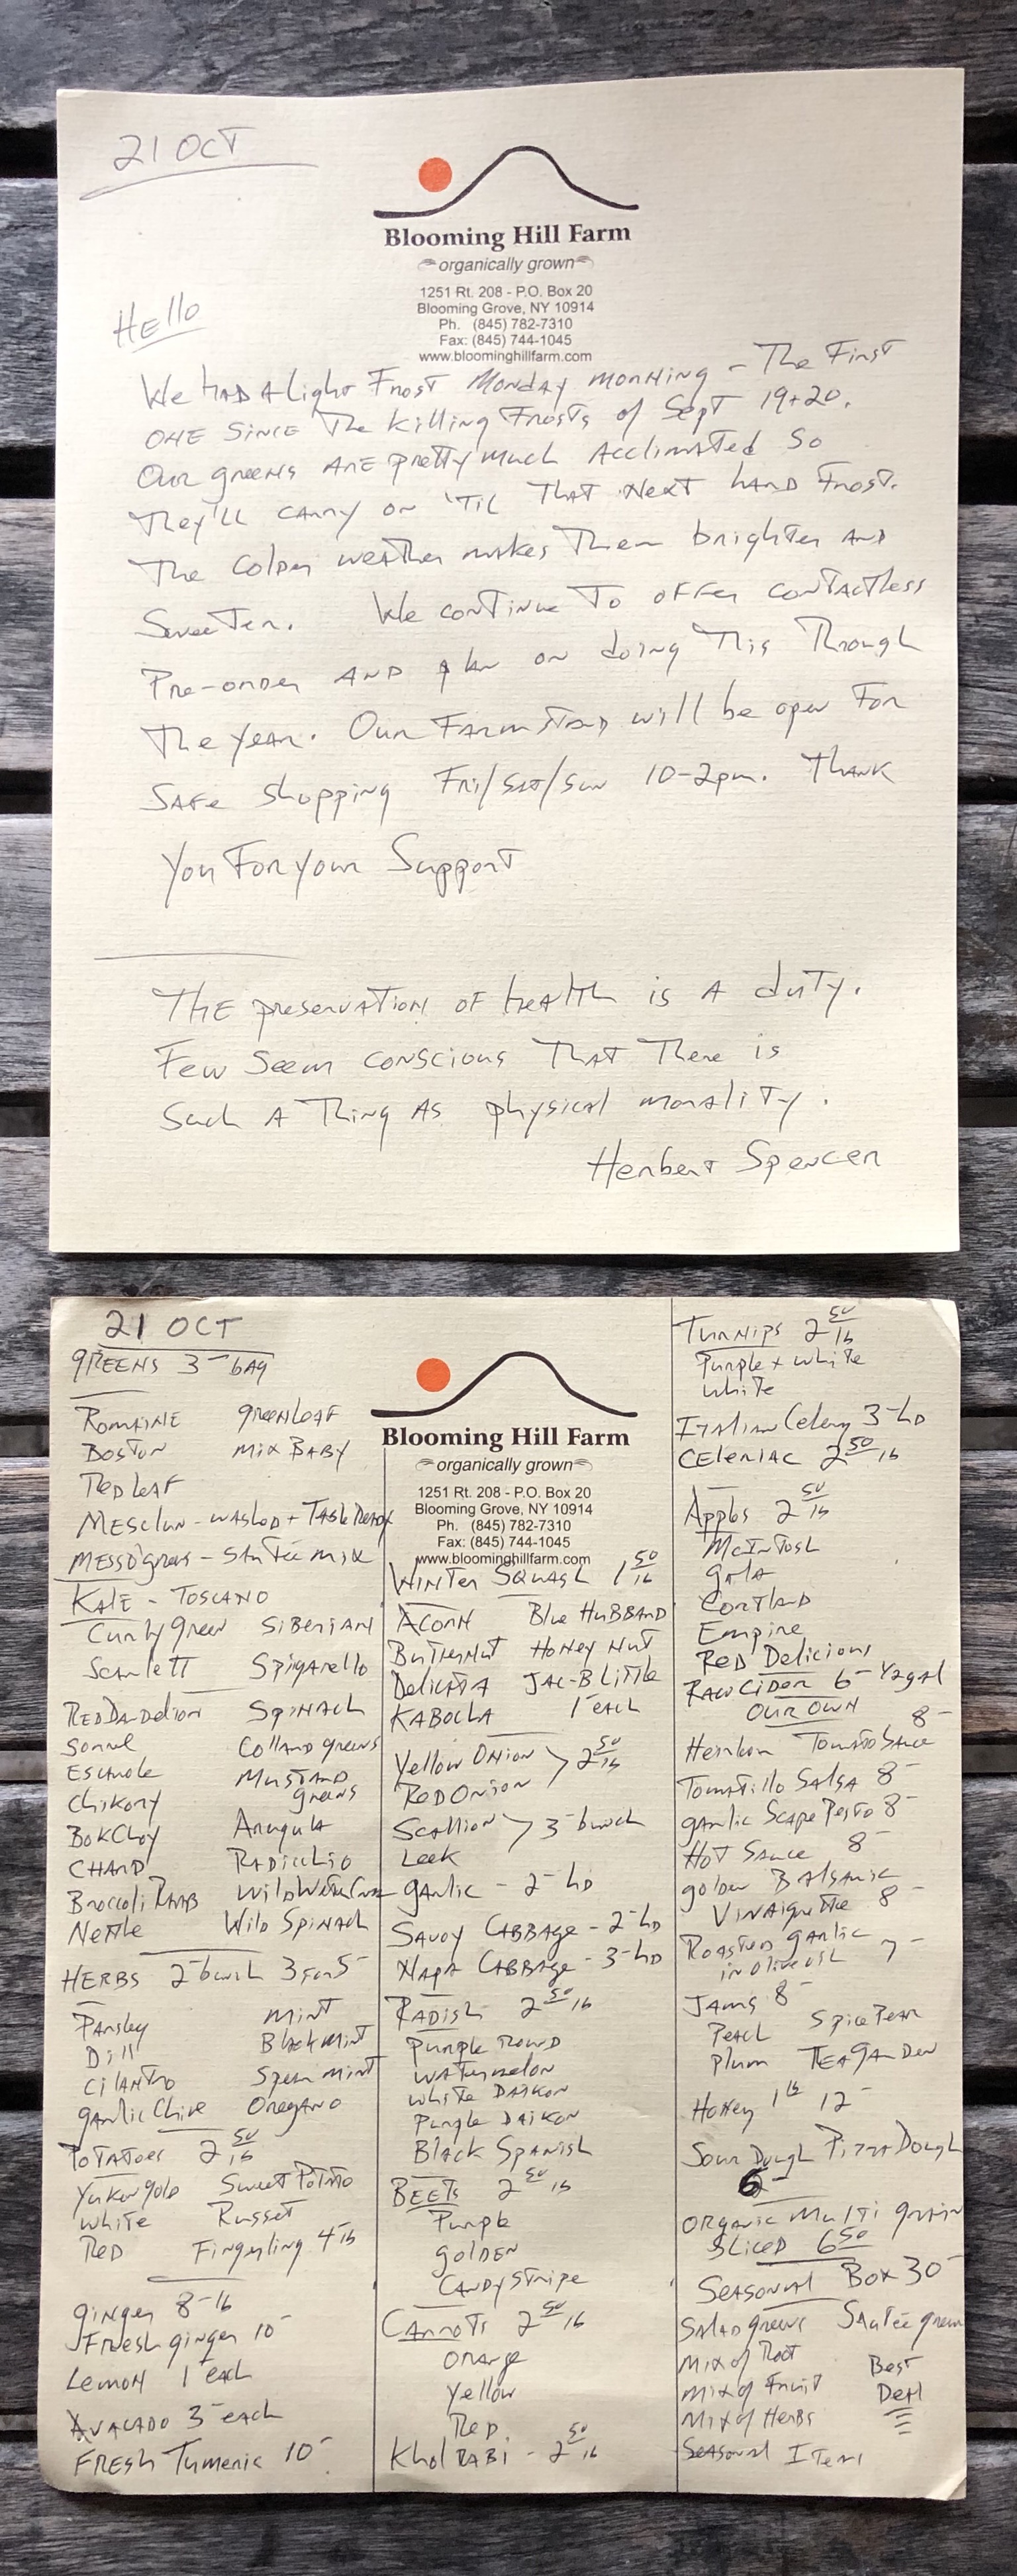 21 OCT
Blooming Hill Farm
organically grown
1251 Rt. 208 - P.O. Box 20
Blooming Grove, NY 10914
Ph. (845) 782-7310
Fax: (845) 744-1045
www.bloominghillfarm.com
Hello
We had a light Frost Monday morning - The First
one since the killing Frosts of Sept 19+20.
Our greens are pretty much acclimated so
They'll carry on 'til That next hard Frost.
The colder weather makes Them brighter and
Sweeter. We continue to offer contactless
Pre-order and plan on doing This Through
The year. Our Farmstand will be open For
Safe shopping Fri/Sat/Sun 10-2pm. Thank
you For your Support
The preservation of health is a duty.
Few seem conscious that there is
such a thing as physical morality.
Herbert Spencer
21 OCT
GREENS 3- bag
Romaine greenleaf
Boston mix Baby
Red leaf
Mesclun - washed + Table Ready
Mess o' greens - sautée mix
Kale - Toscano
Curly green Siberian
Scarlett Spigarello
Red Dandelion Spinach
Sorrel Collard greens
Escarole Mustard greens
Chikory
BokChoy Arugula
Chard Radicchio
Broccoli Raab Wild WaterCress
Nettle Wild Spinach
HERBS 2- bunch 3 for 5-
Parsley mint
Dill Black mint
Cilantro Spearmint
garlic Chive Oregano
Potatoes 2 50 lb
Yukon gold Sweet Potato
white Russet
Red Fingerling 4- lb
ginger 8- lb
Fresh ginger 10-
Lemon 1- each
Avacado 3- each
Fresh Tumeric 10-
Blooming Hill Farm
organically grown
1251 Rt. 208 - P.O. Box 20
Blooming Grove, NY 10914
Ph. (845) 782-7310
Fax: (845) 744-1045
www.bloominghillfarm.com
Winter Squash 1 50 lb
Acorn Blue Hubbard
Butternut Honey Nut
Delicata Jac-B Little
Kabocha 1- each
Yellow Onion > 2 50 lb
Red Onion
Scallion > 3- bunch
Leek
garlic - 2- hd
Savoy Cabbage - 2- hd
Napa Cabbage - 3- hd
Radish 2 50 lb
Purple Round
Watermelon
White Daikon
Purple Daikon
Black Spanish
Beets 2 50 lb
Purple
golden
Candystripe
Carrots 2 50 lb
Orange
Yellow
Red
Khol Rabi - 2 50 lb
Turnips 2 50 lb
Purple + white
white
Italian Celery 3- hd
Celeriac 2 50 lb
Apples 2 50 lb
McIntosh
gala
Cortland
Empire
Red Delicious
Raw Cider 6- 1/2 gal
our own
Heirloom Tomato Sauce 8-
Tomatillo Salsa 8-
garlic Scape Pesto 8-
Hot Sauce 8-
golden Balsamic
Vinaigrette 8-
Roasted garlic
in olive oil 7-
Jams 8-
Peach Spice Pear
Plum Tea Garden
Honey 1 lb 12-
Sour Dough Pizza Dough
6-
Organic Multi grain
Sliced 6 50
Seasonal Box 30-
Salad greens Sautée greens
Mix of Root Best
Mix of Fruit Deal
Mix of Herbs
Seasonal Item